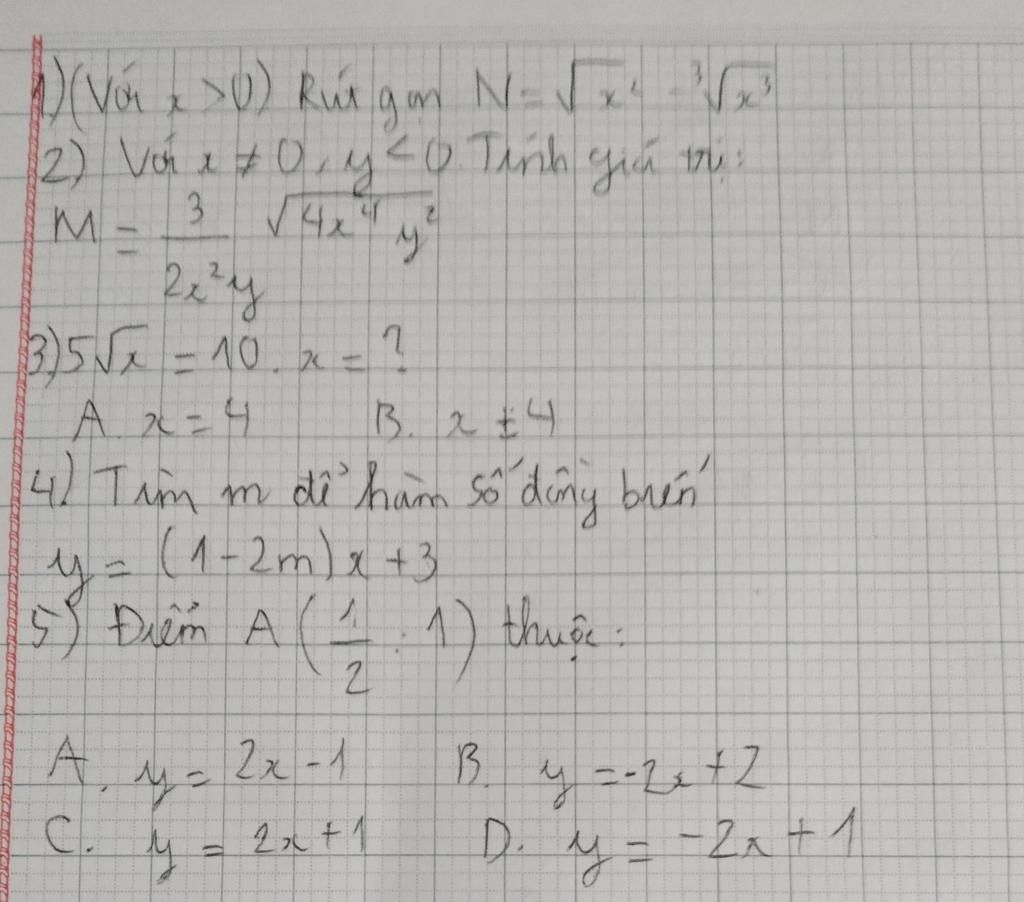 1) (Với x > 0) Rút gọn N = √x² - ³√x³
2) Với x ≠ 0, y < 0. Tính giá trị:
M = 3/(2x²y) √(4x⁴y²)
3) 5√x = 10. x = ?
A. x = 4 B. x ± 4
4) Tìm m để hàm số đồng biến
y = (1 - 2m)x + 3
5) Điểm A (1/2 ; 1) thuộc:
A. y = 2x - 1 B. y = -2x + 2
C. y = 2x + 1 D. y = -2x + 1